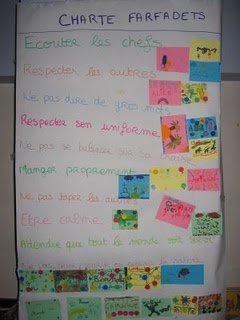 CHARTE FARFADETS
Ecouter les chefs
Respecter les autres
Ne pas dire de gros mots
Respecter son uniforme
Ne pas se balancer sur sa chaise
Manger proprement
Ne pas taper les autres
Etre calme
Attendre que tout le monde soit servi